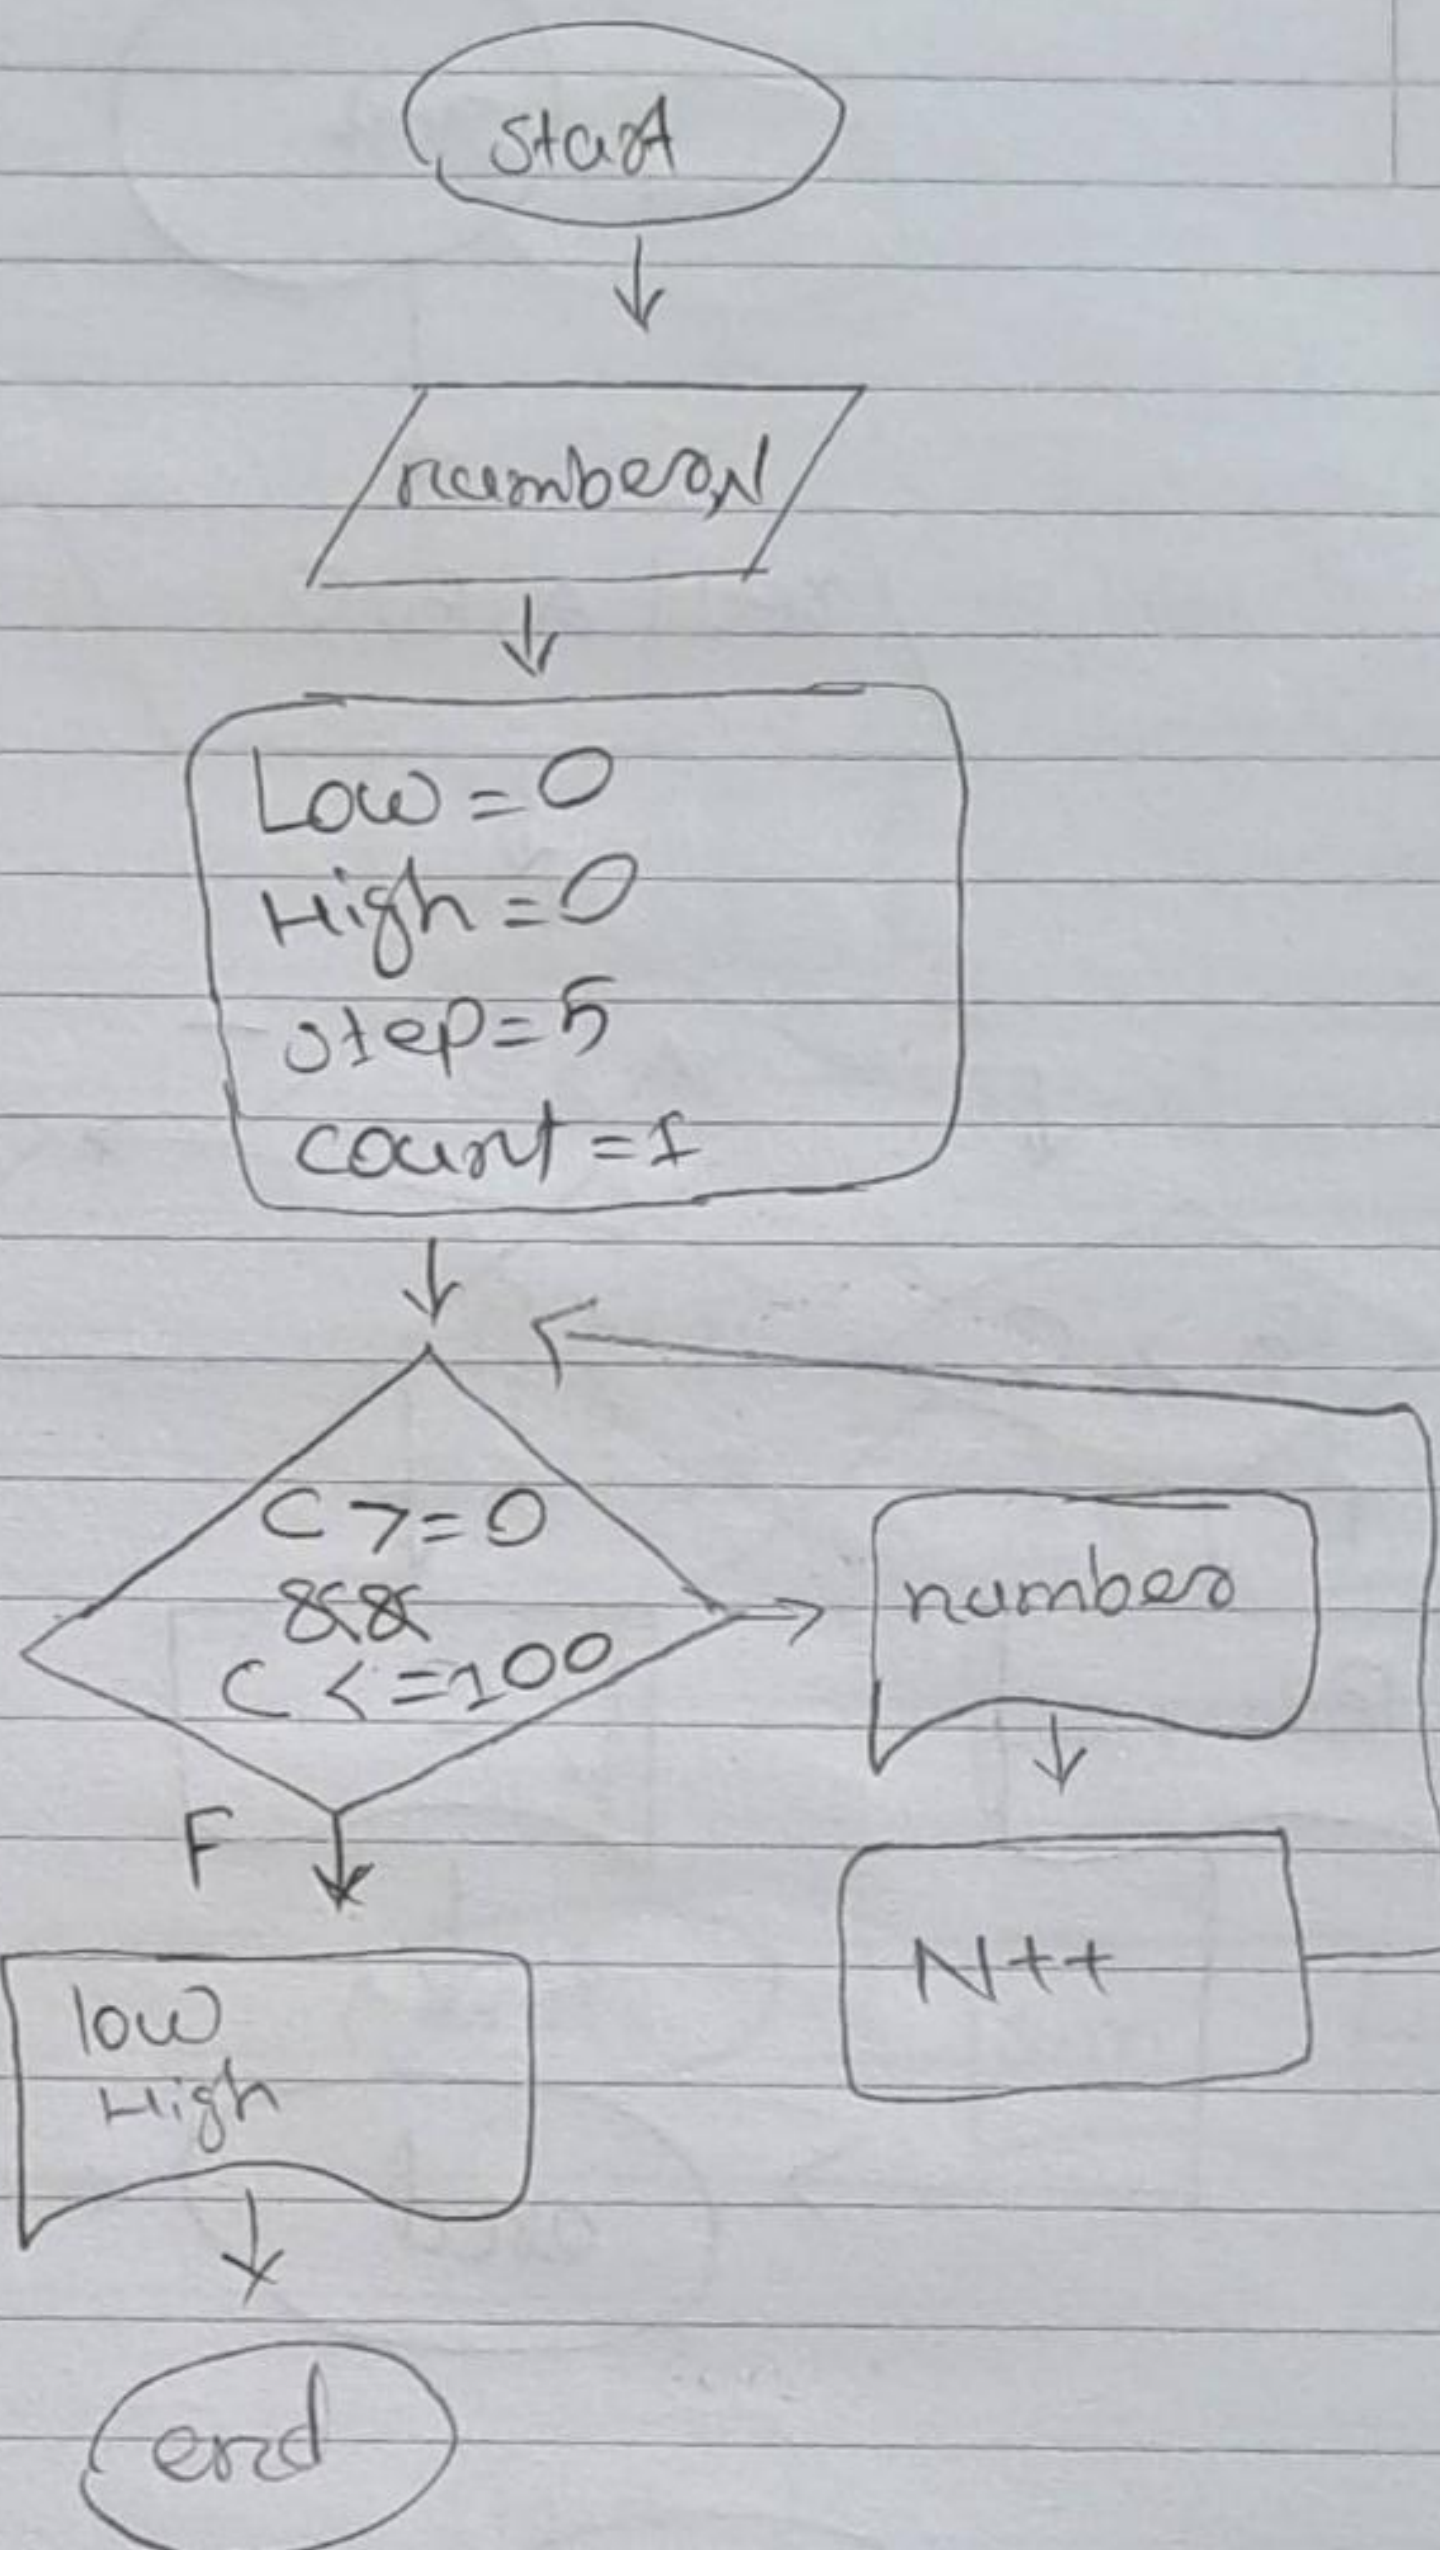 Start
number,N
Low = 0
High = 0
step = 5
count = 1
C >= 0
&&
C <= 100
number
F
N++
low
High
end